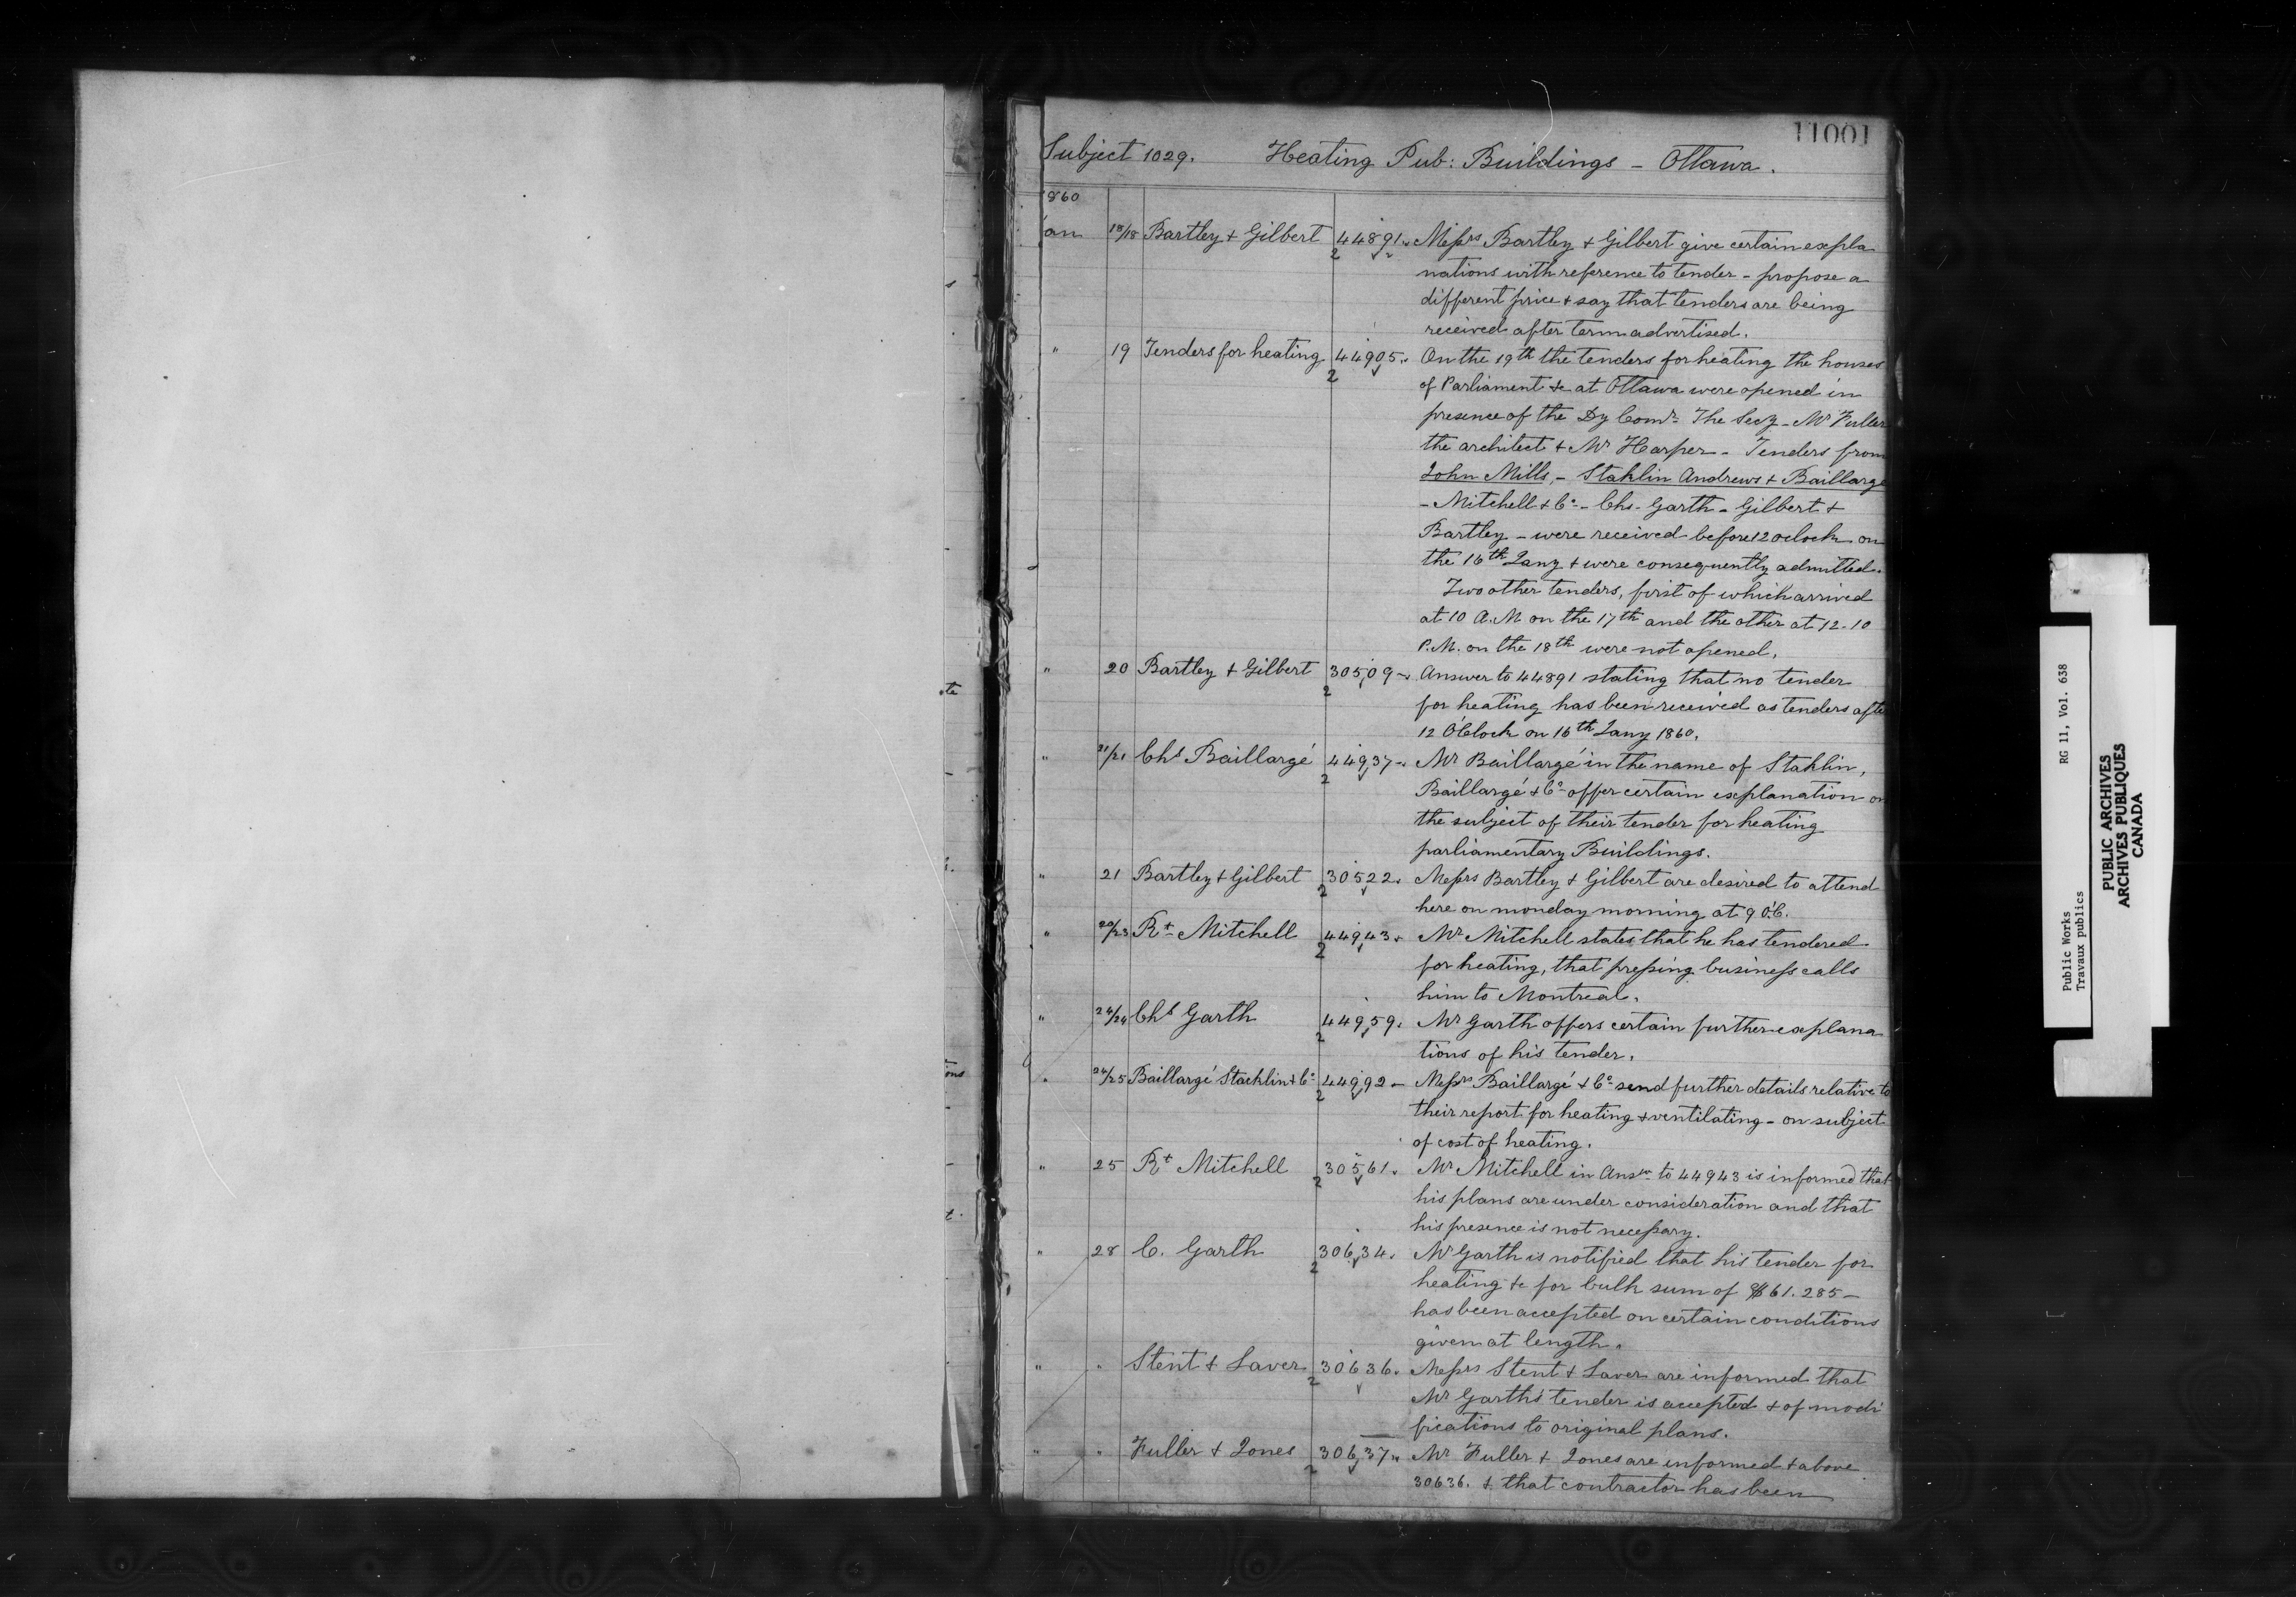 11001
Subject 1029. Heating Pub: Buildings - Ottawa.
860
an 18/18 Bartley & Gilbert 44891. Messrs Bartley & Gilbert give certain expla
2
nations with reference to tender - propose a
different price & say that tenders are being
received after term advertised.
" 19 Tenders for heating 44905. On the 19th the tenders for heating the houses
2
of Parliament &c at Ottawa were opened in
presence of the Dy Comr The Secy - Mr Fuller
the architect & Mr Harper - Tenders from
John Mills, - Stahlin Andrews & Baillargé
- Mitchell & Co - Chs. Garth - Gilbert &
Bartley - were received before 12 oclock on
the 16th Jany & were consequently admitted.
Two other tenders, first of which arrived
at 10 A.M. on the 17th and the other at 12-10
P.M. on the 18th were not opened.
" 20 Bartley & Gilbert 30509 - Answer to 44891 stating that no tender
2
for heating has been received as tenders afte
12 O'Clock on 16th Jany 1860.
" 21/21 Chs Baillargé 44937 - Mr Baillargé in the name of Stahlin,
2
Baillargé & Co offer certain explanation on
the subject of their tender for heating
parliamentary Buildings.
" 21 Bartley & Gilbert 30522. Messrs Bartley & Gilbert are desired to attend
2
here on monday morning at 9 O'C.
" 20/23 Rt Mitchell 44943. Mr Mitchell states that he has tendered
2
for heating, that pressing business calls
him to Montreal.
" 24/24 Chs Garth 44959. Mr Garth offers certain further explana
2
tions of his tender.
" 24/25 Baillargé Stachlin & Co 44992 - Messrs Baillargé & Co send further details relative to
2
their report for heating & ventilating - on subject
of cost of heating.
" 25 Rt Mitchell 30561. Mr Mitchell in Answr to 44943 is informed that
2
his plans are under consideration and that
his presence is not necessary.
" 28 C. Garth 30634. Mr Garth is notified that his tender for
2
heating &c for bulk sum of $61.285 -
has been accepted on certain conditions
given at length.
" " Stent & Laver 30636. Messrs Stent & Laver are informed that
2
Mr Garth's tender is accepted & of modi
fications to original plans.
" " Fuller & Jones 30637. Mr Fuller & Jones are informed & above
2
30636. & that contractor has been
te
ons
t.
Public Works RG 11, Vol. 638
Travaux publics
PUBLIC ARCHIVES
ARCHIVES PUBLIQUES
CANADA